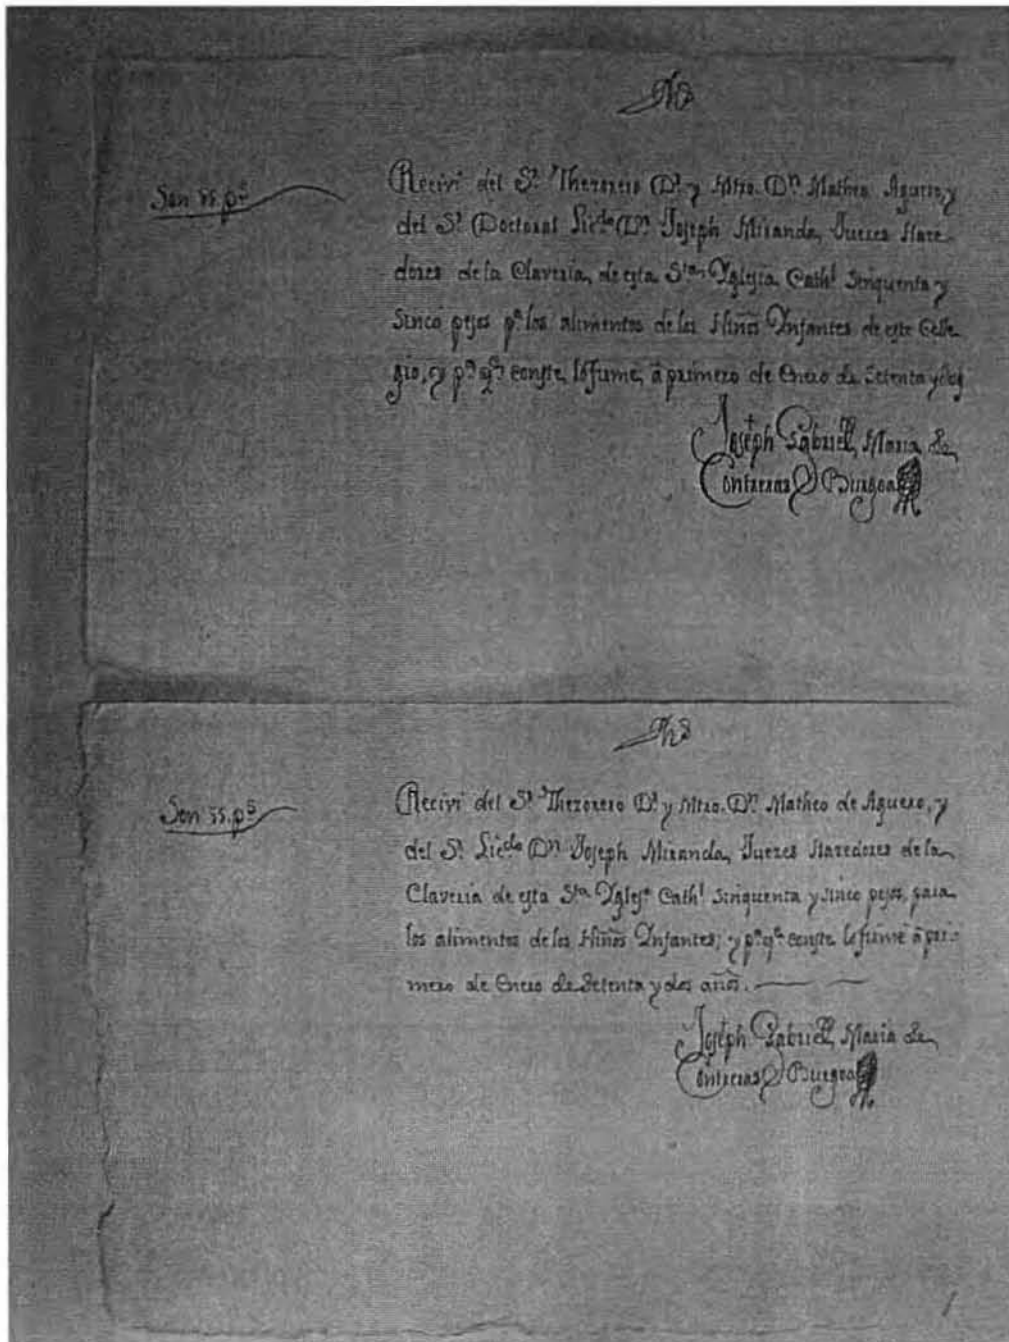 Recivi del Sr. Thezorero Dr. y Mtro. Dn. Matheo Aguero, y
Son 55. ps.
del Sr. Doctoral Licdo. Dn. Joseph Miranda, Juezes Hare-
dores de la Claveria, de esta Sta. Yglesia Cathl. sinquenta y
Sinco pesos pa. los alimentos de los Niños Ynfantes de este Colle-
gio, y pa. qe. conste, lo firmé, â primero de Enero de Setenta y dos
Joseph Gabriel, Maria de
Contreras Burgoa
Recivi del Sr. Thezorero Dr. y Mtro. Dn. Matheo de Aguero, y
Son 55. ps.
del Sr. Licdo. Dn. Joseph Miranda, Juezes Haredores de la
Claveria de esta Sta. Yglesa. Cathl. sinquenta y sinco pesos, para
los alimentos de los Niños Ynfantes; y pa. qe. conste lo firmé â pri-
mero de Enero de Setenta y dos años.
Joseph Gabriel, Maria de
Contreras Burgoa